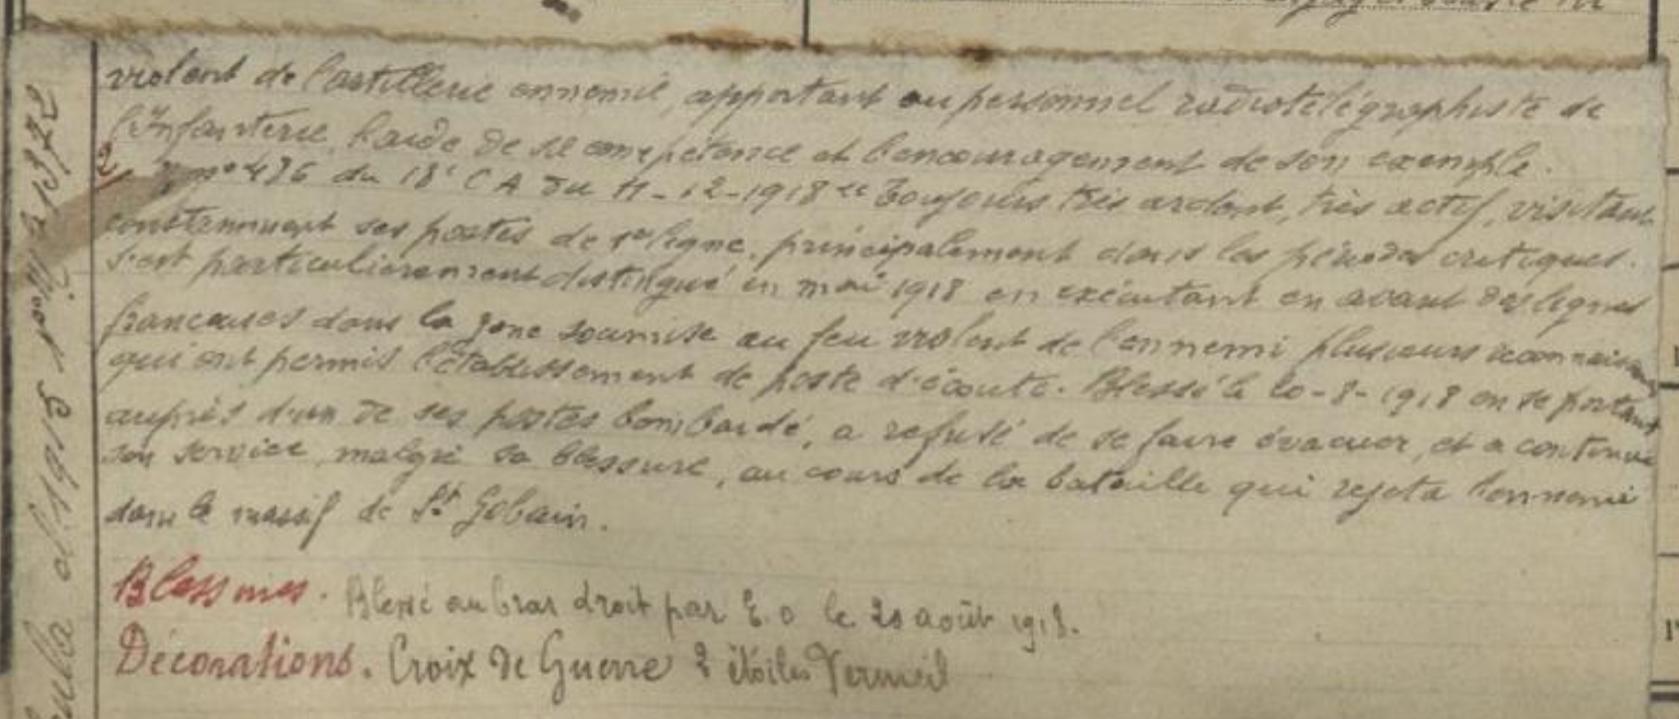 violent de l'artillerie ennemie, apportant au personnel radiotélégraphiste de
l'Infanterie l'aide de sa compétence et l'encouragement de son exemple.
2 n° 436 du 18e C A du 11-12-1918 "Toujours très ardent, très actif, visitant
constamment ses postes de 1re ligne, principalement dans les périodes critiques.
S'est particulièrement distingué en mai 1918 en exécutant en avant des lignes
françaises dans la zone soumise au feu violent de l'ennemi plusieurs
qui ont permis l'établissement de poste d'écoute. Blessé le 20-8-1918 en se portant
auprès d'un de ses postes bombardé, a refusé de se faire évacuer, et a continué
son service, malgré sa blessure, au cours de la bataille qui rejeta l'ennemi
dans le massif de St Gobain.
Blessures. Blessé au bras droit par E. O le 20 août 1918.
Décorations. Croix de Guerre 2 étoiles Vermeil